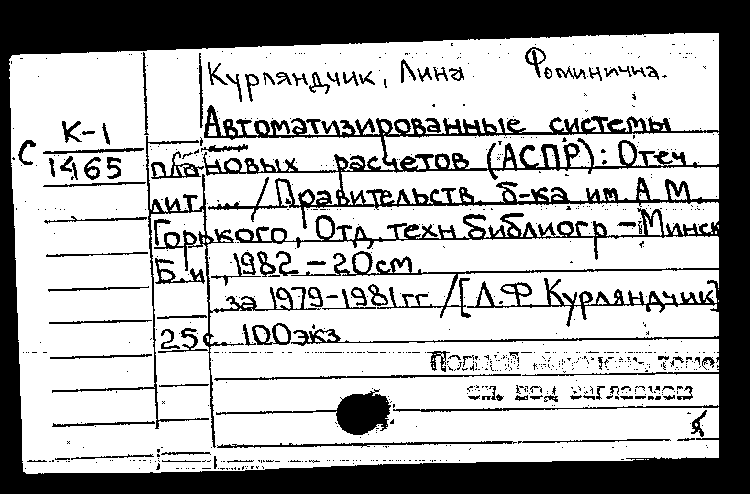 Курляндчик, Лина Фоминична.
С К-1
1465
Автоматизированные системы
плановых расчетов (АСПР): Отеч.
лит. ... / Правительств. б-ка им. А.М.
Горького, Отд. техн библиогр. – Минск
Б.и., 1982. – 20см.
... за 1979–1981гг. / [Л.Ф Курляндчик]
25с. 100экз.
см. под заглавием